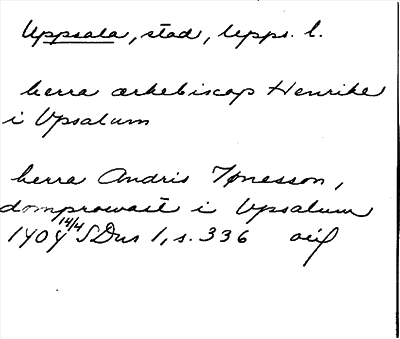 Uppsala, stad, Upps. l.
herra ærkebiscop Henrike
i Vpsalum
herra Andris Jønesson,
domprowast i Vpsalum
1404 14/4 SDns 1, s. 336